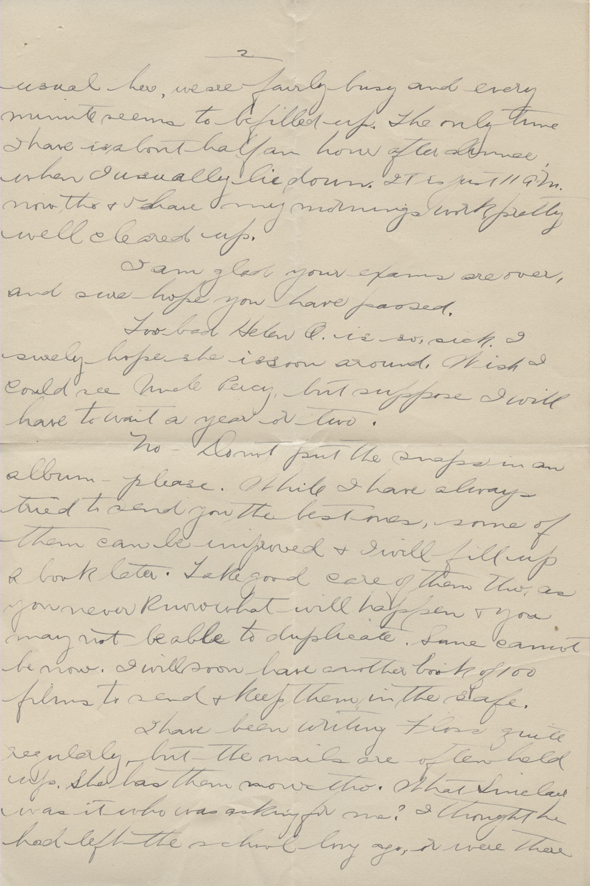 2
usual here, we are fairly busy and every
minute seems to be filled up. The only time
I have is about half an hour after dinner,
when I usually lie down. It is just 11 A.M.
now tho & I have my mornings work pretty
well cleared up.
I am glad your exams are over,
and sure hope you have passed.
Too bad Helen Q. is so sick. I
surely hope she is soon around. Wish I
could see Uncle Percy, but suppose I will
have to wait a year or two.
No - Do not put the snaps in an
album - please. While I have always
tried to send you the best ones, some of
them can be improved & I will fill up
a book later. Take good care of them tho, as
you never know what will happen & you
may not be able to duplicate. Some cannot
be now. I will soon have another book of 100
films to send & keep them in the safe.
I have been writing Floss quite
regularly, but the mails are often held
up. She has them now tho. What Sinclair
was it who was asking for me? I thought he
had left the school long ago, or were there